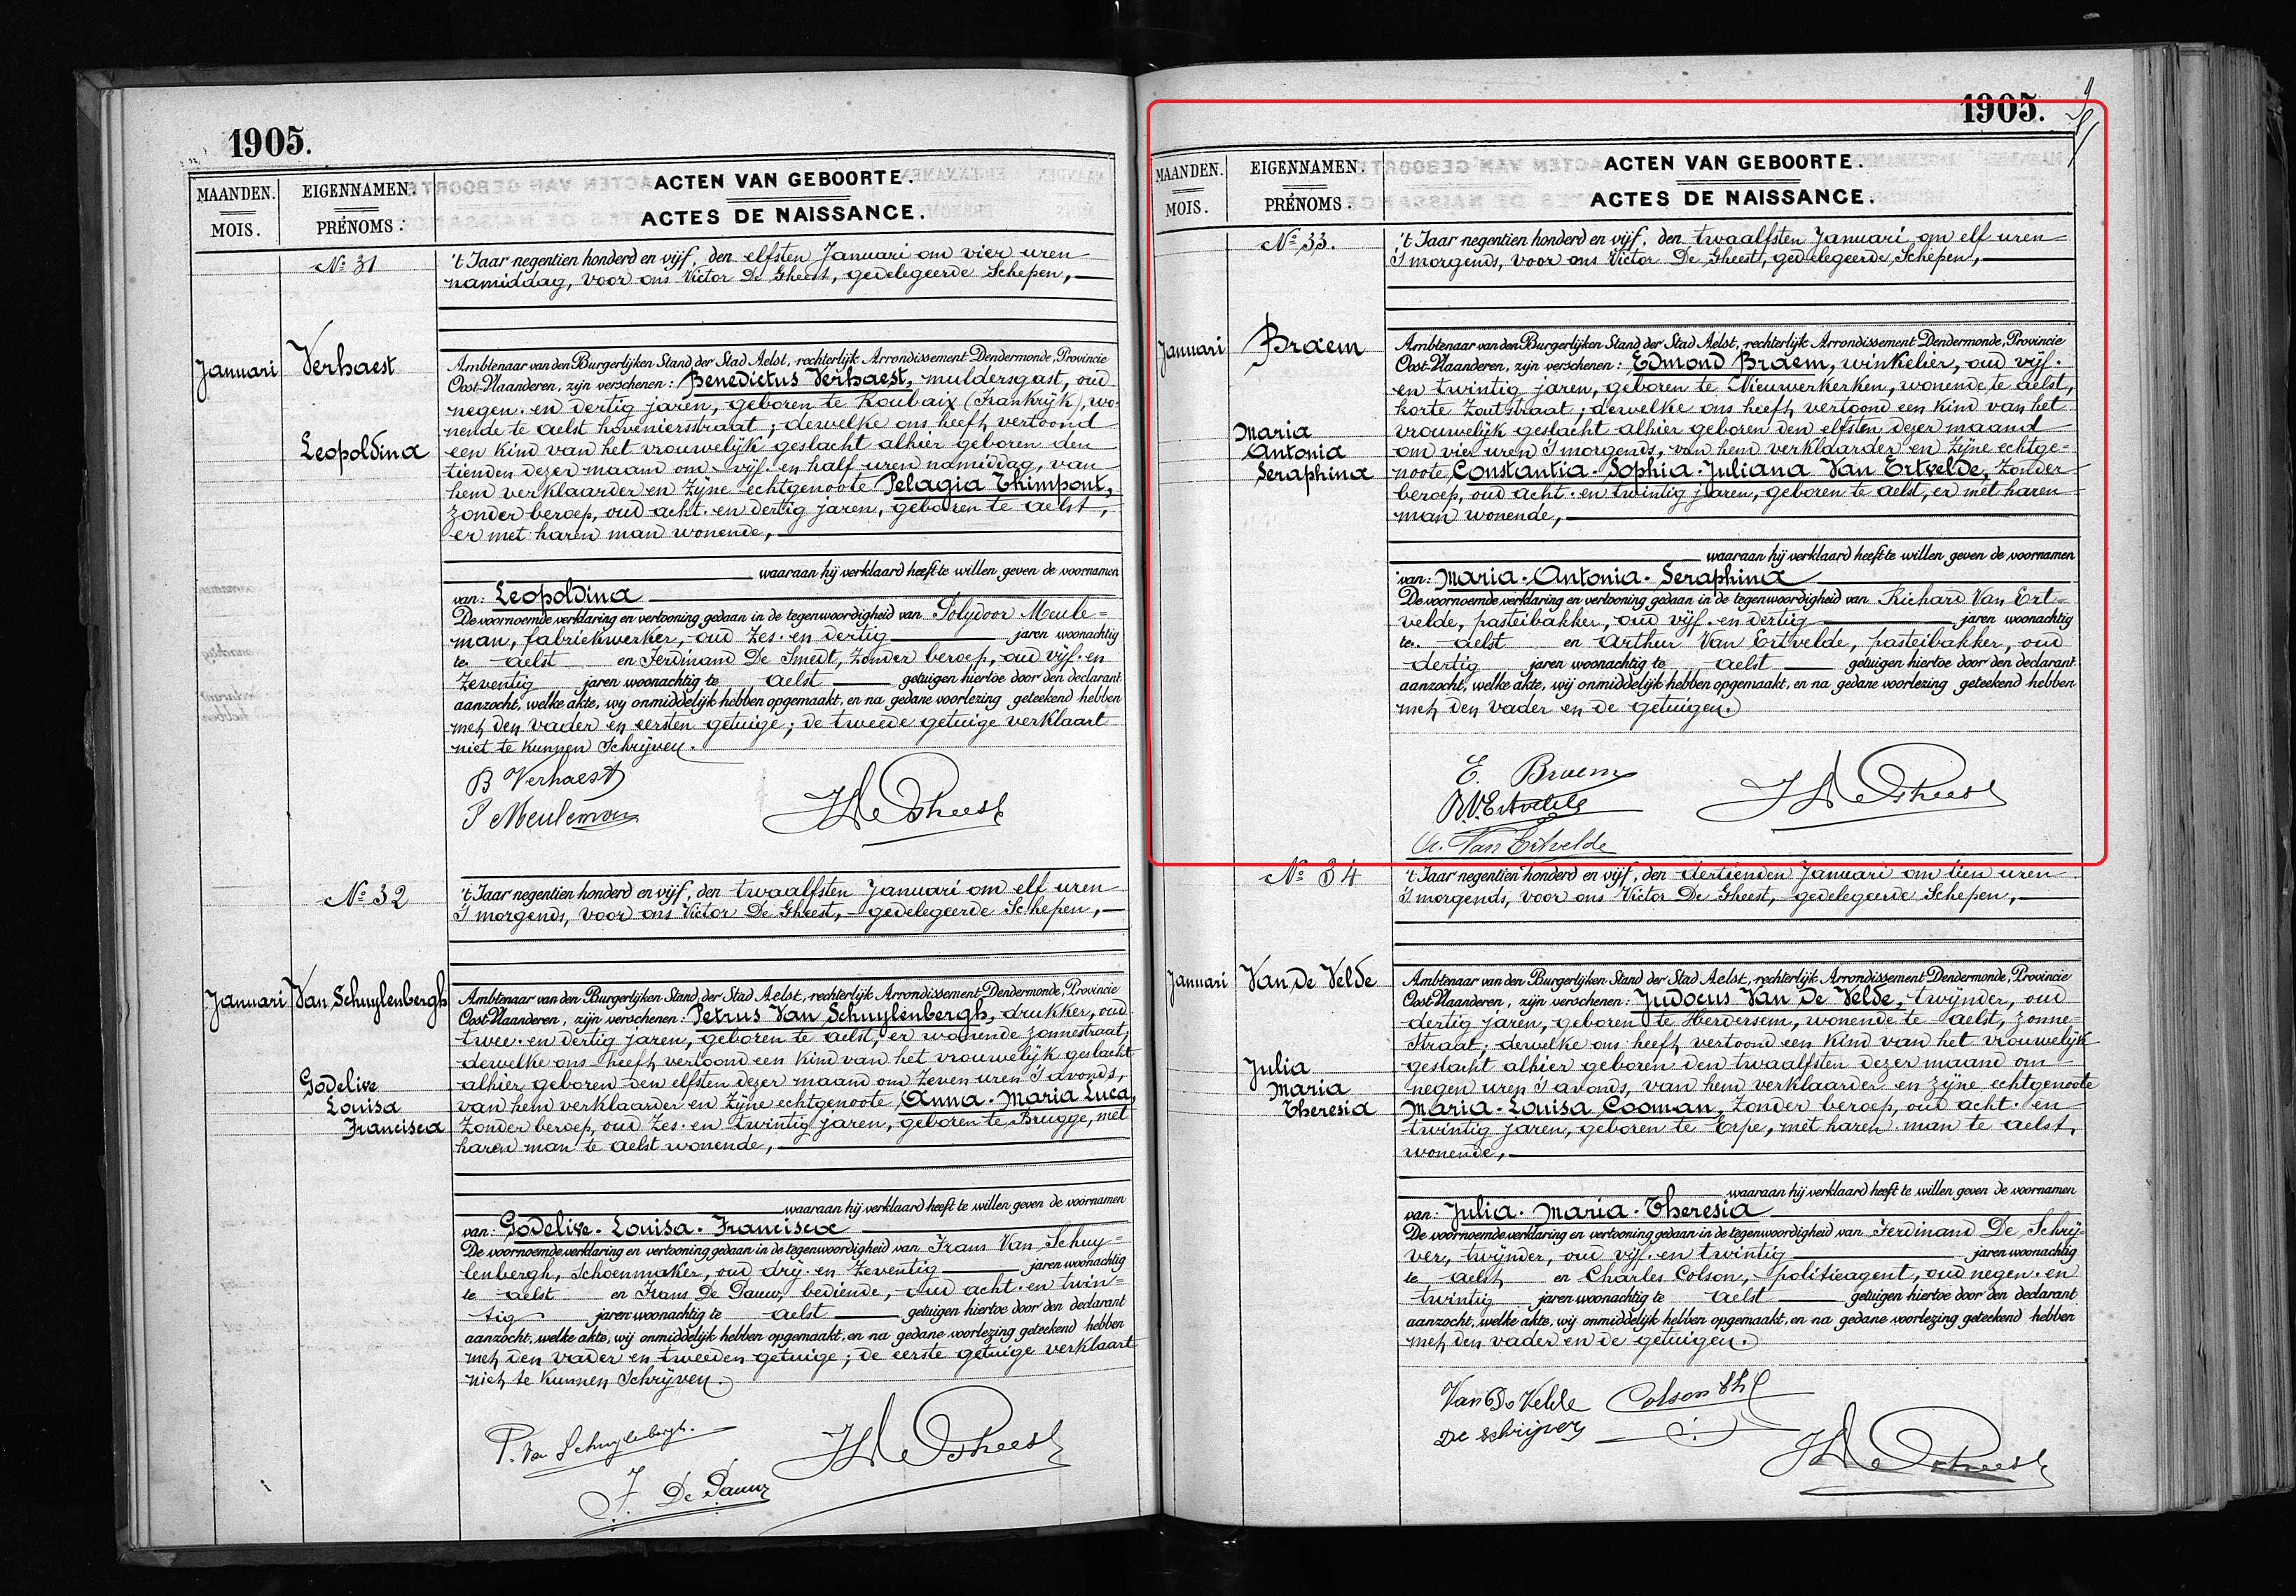 1905.
MAANDEN.
MOIS.
EIGENNAMEN.
PRÉNOMS.
ACTEN VAN GEBOORTE.
ACTES DE NAISSANCE.
Nº 31
't Jaar negentien honderd en vijf, den elfsten Januari om vier uren
namiddag, voor ons Victor De Gheest, gedelegeerde Schepen,
Januari
Verhaest
Leopoldina
Ambtenaar van den Burgerlijken Stand der Stad Aelst, rechterlijk Arrondissement Dendermonde, Provincie
Oost-Vlaanderen, zijn verschenen: Benedictus Verhaest, muldersgast, oud
negen-en dertig jaren, geboren te Roubaix (Frankrijk), wo-
nende te Aelst hoveniersstraat; dewelke ons heeft vertoond
een kind van het vrouwelijk geslacht alhier geboren den
tienden dezer maand om vijf-en half uren namiddag, van
hem verklaarder en zijne echtgenoote Pelagia Thimpont,
zonder beroep, oud acht-en dertig jaren, geboren te Aelst,
er met haren man wonende,
waaraan hij verklaard heeft te willen geven de voornamen
van: Leopoldina
De voornoemde verklaring en vertooning gedaan in de tegenwoordigheid van Polydoor Meule=
man, fabriekwerker, oud zes-en dertig jaren woonachtig
te Aelst en Ferdinand De Smedt, zonder beroep, oud vijf-en
zeventig jaren woonachtig te Aelst getuigen hiertoe door den declarant
aanzocht, welke akte, wij onmiddelijk hebben opgemaakt, en na gedane voorlezing geteekend hebben
met den vader en eersten getuige; de tweede getuige verklaart
niet te kunnen schrijven.
B Verhaest
P Meuleman
V De Gheest
Nº 32
't Jaar negentien honderd en vijf, den twaalfsten Januari om elf uren
's morgends, voor ons Victor De Gheest, gedelegeerde Schepen,
Januari
Van Schuylenbergh
Godelive
Louisa
Francisca
Ambtenaar van den Burgerlijken Stand der Stad Aelst, rechterlijk Arrondissement Dendermonde, Provincie
Oost-Vlaanderen, zijn verschenen: Petrus Van Schuylenbergh, drukker, oud
twee-en dertig jaren, geboren te Aelst, er wonende zonnestraat;
dewelke ons heeft vertoond een kind van het vrouwelijk geslacht
alhier geboren den elfsten dezer maand om zeven uren 's avonds,
van hem verklaarder en zijne echtgenoote Anna-Maria Luca,
zonder beroep, oud zes-en twintig jaren, geboren te Brugge, met
haren man te Aelst wonende,
waaraan hij verklaard heeft te willen geven de voornamen
van: Godelive-Louisa-Francisca
De voornoemde verklaring en vertooning gedaan in de tegenwoordigheid van Frans Van Schuy=
lenbergh, schoenmaker, oud drij-en zeventig jaren woonachtig
te Aelst en Frans De Pauw, bediende, oud acht-en twin=
tig jaren woonachtig te Aelst getuigen hiertoe door den declarant
aanzocht, welke akte, wij onmiddelijk hebben opgemaakt, en na gedane voorlezing geteekend hebben
met den vader en tweeden getuige; de eerste getuige verklaart
niet te kunnen schrijven.
P. Van Schuylebergh.
F. De Pauw
V De Gheest
1905.
MAANDEN.
MOIS.
EIGENNAMEN.
PRÉNOMS.
ACTEN VAN GEBOORTE.
ACTES DE NAISSANCE.
Nº 33.
't Jaar negentien honderd en vijf, den twaalfsten Januari om elf uren
's morgends, voor ons Victor De Gheest, gedelegeerde Schepen,
Januari
Braem
Maria
Antonia
Seraphina
Ambtenaar van den Burgerlijken Stand der Stad Aelst, rechterlijk Arrondissement Dendermonde, Provincie
Oost-Vlaanderen, zijn verschenen: Edmond Braem, winkelier, oud vijf-
en twintig jaren, geboren te Nieuwerkerken, wonende te Aelst,
korte Zoutstraat; dewelke ons heeft vertoond een kind van het
vrouwelijk geslacht alhier geboren den elfsten dezer maand
om vier uren 's morgends, van hem verklaarder en zijne echtge-
noote Constantia-Sophia-Juliana Van Ertvelde, zonder
beroep, oud acht-en twintig jaren, geboren te Aelst, er met haren
man wonende,
waaraan hij verklaard heeft te willen geven de voornamen
van: Maria-Antonia-Seraphina
De voornoemde verklaring en vertooning gedaan in de tegenwoordigheid van Richard Van Ert=
velde, pasteibakker, oud vijf-en dertig jaren woonachtig
te Aelst en Arthur Van Ertvelde, pasteibakker, oud
dertig jaren woonachtig te Aelst getuigen hiertoe door den declarant
aanzocht, welke akte, wij onmiddelijk hebben opgemaakt, en na gedane voorlezing geteekend hebben
met den vader en de getuigen.
E. Braem
R.V.Ertvelde
A. Van Ertvelde
V De Gheest
Nº 34
't Jaar negentien honderd en vijf, den dertienden Januari om tien uren
's morgends, voor ons Victor De Gheest, gedelegeerde Schepen,
Januari
Van de Velde
Julia
Maria
Theresia
Ambtenaar van den Burgerlijken Stand der Stad Aelst, rechterlijk Arrondissement Dendermonde, Provincie
Oost-Vlaanderen, zijn verschenen: Judocus Van de Velde, twijnder, oud
dertig jaren, geboren te Herdersem, wonende te Aelst, zonne=
straat; dewelke ons heeft vertoond een kind van het vrouwelijk
geslacht alhier geboren den twaalfsten dezer maand om
negen uren 's avonds, van hem verklaarder en zijne echtgenoote
Maria-Louisa Cooman, zonder beroep, oud acht-en
twintig jaren, geboren te Erpe, met haren man te Aelst,
wonende,
waaraan hij verklaard heeft te willen geven de voornamen
van: Julia-Maria-Theresia
De voornoemde verklaring en vertooning gedaan in de tegenwoordigheid van Ferdinand De Schrij-
ver, twijnder, oud vijf-en twintig jaren woonachtig
te Aelst en Charles Colson, politieagent, oud negen-en
twintig jaren woonachtig te Aelst getuigen hiertoe door den declarant
aanzocht, welke akte, wij onmiddelijk hebben opgemaakt, en na gedane voorlezing geteekend hebben
met den vader en de getuigen.
Van De Velde
Colson Ch
De Schrijver
V De Gheest